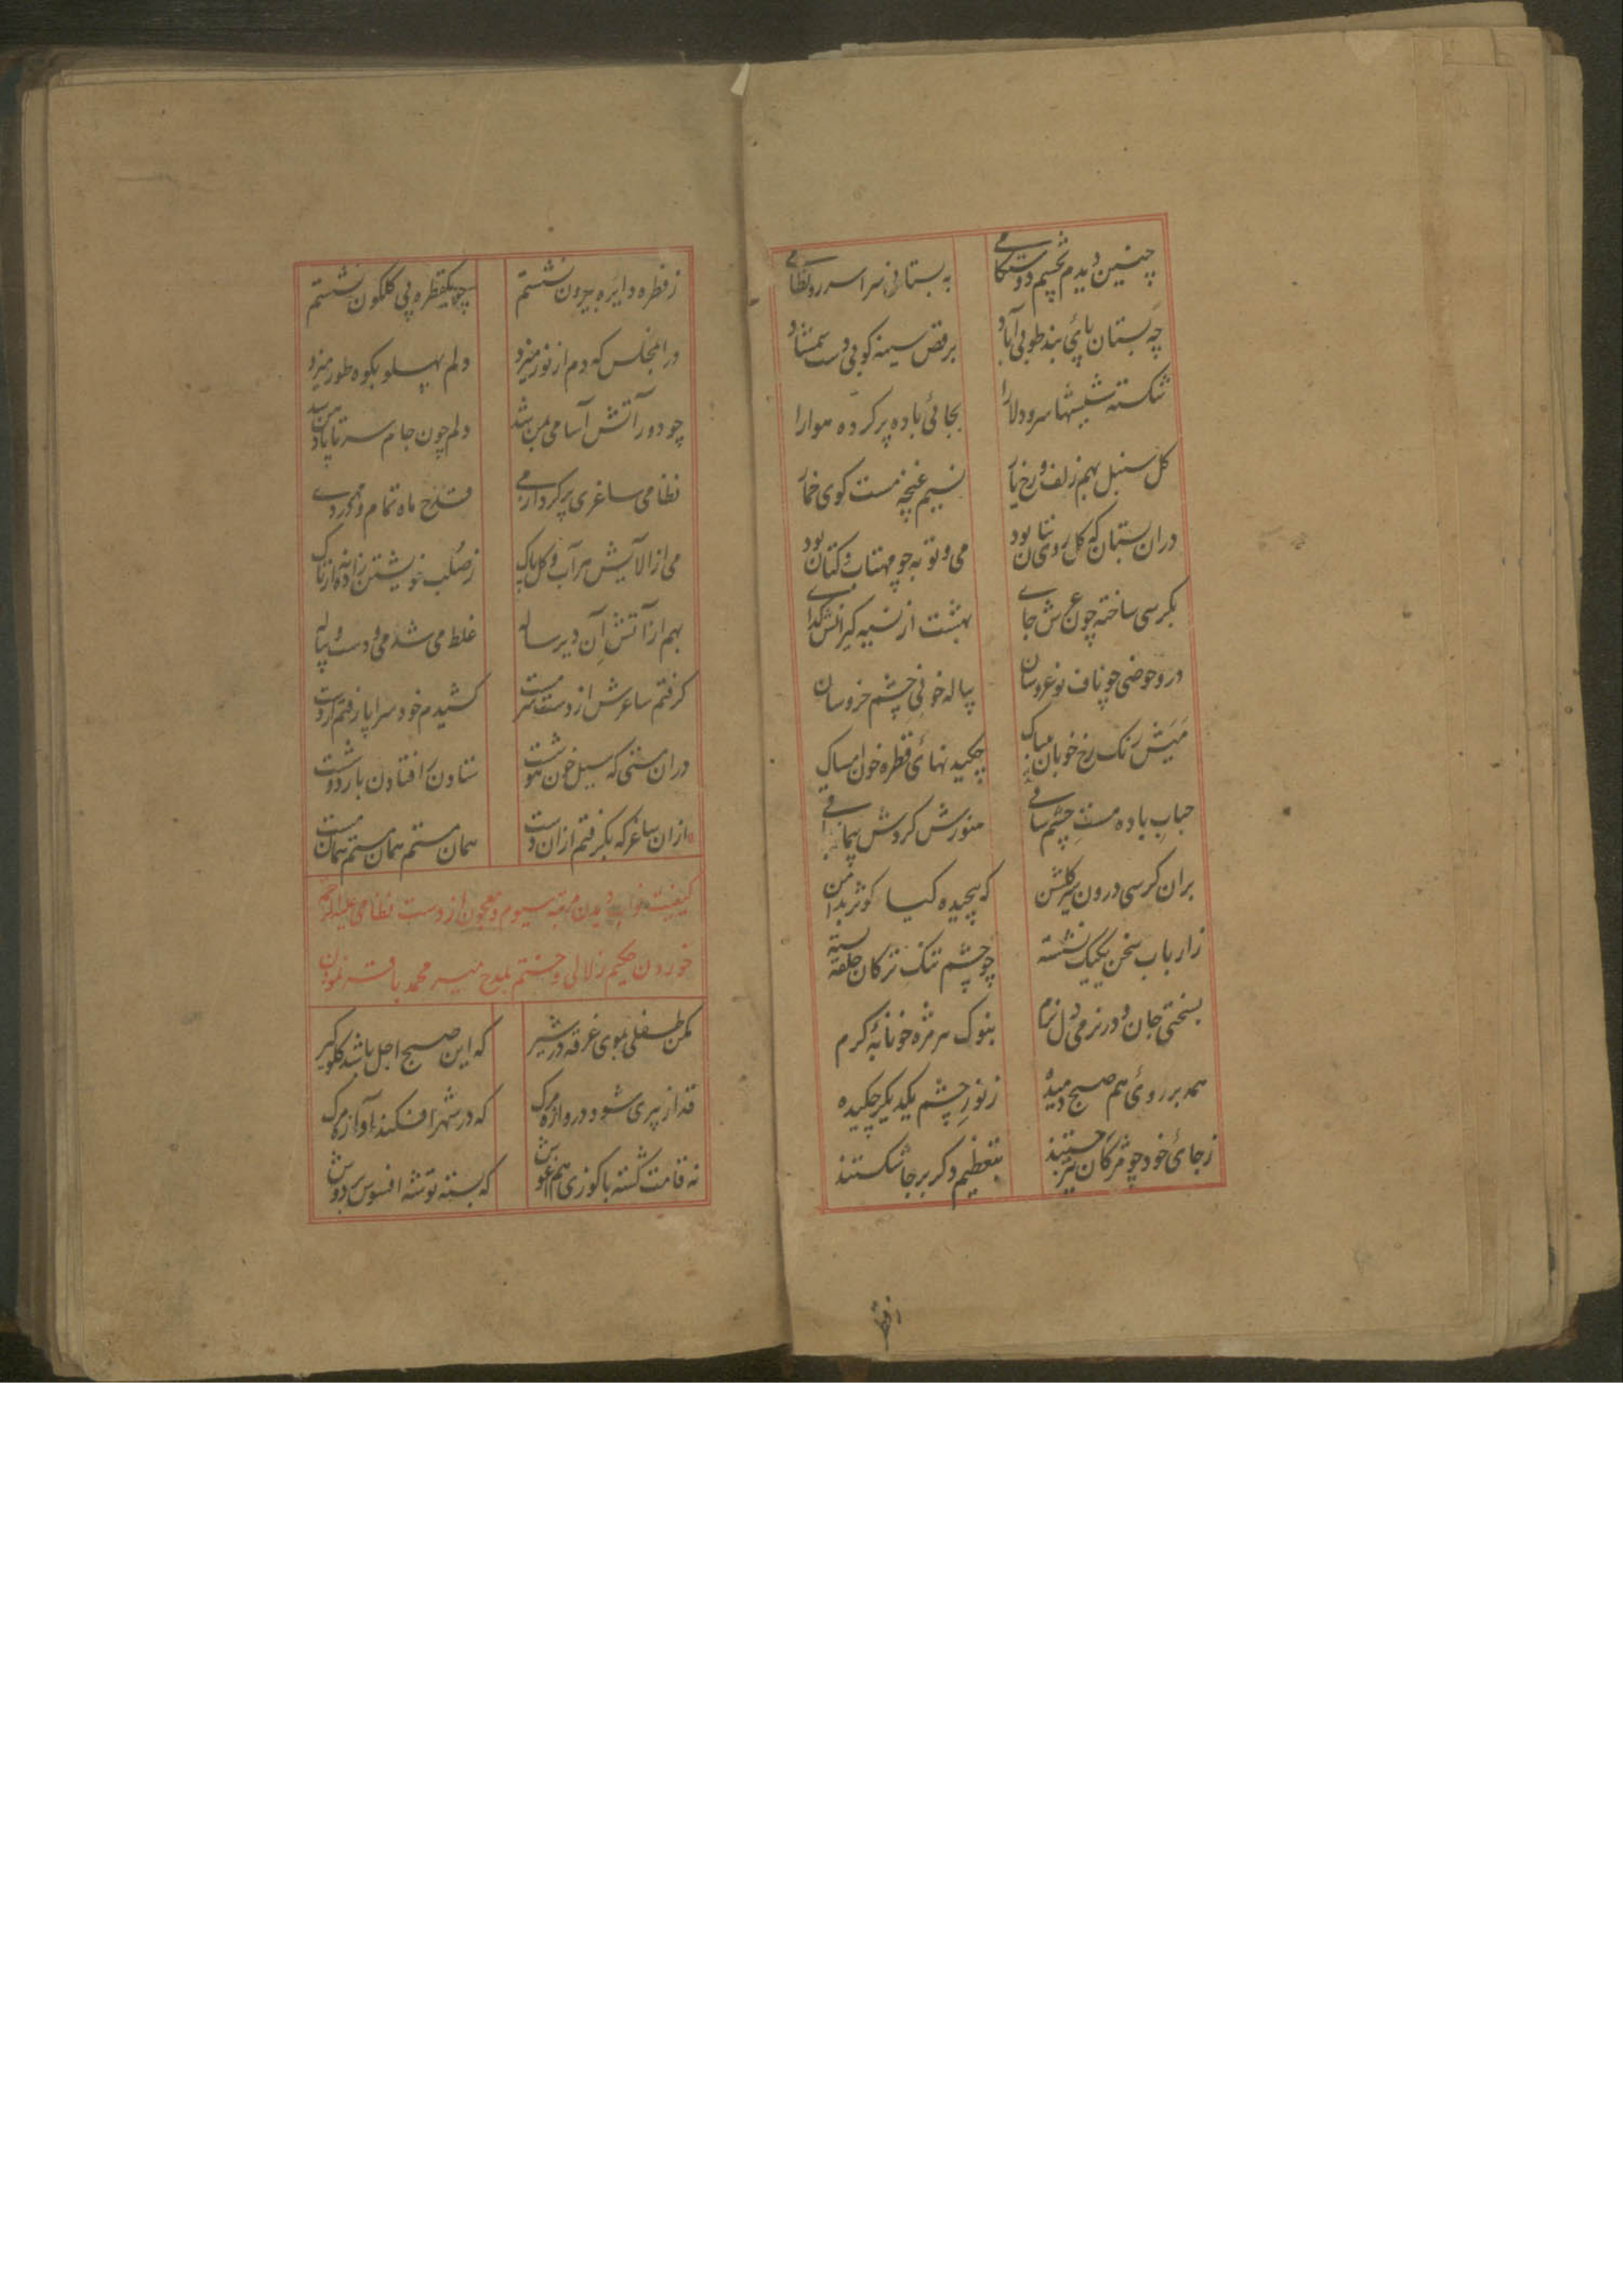 چنین دیدم بچشم دوستکامی به بستانی سراسر رو نظامی
چه بستان پای بند طوبی آباد برقص سینه کوبی دست شمشاد
شکسته شیشها سرو دلارا بجائی باده پر کرده هوارا
کل سنبل بهم زلف و رخ یار نسیم غنچه مست کوی خمار
دران بستان که کل روی بتان بود می و توبه چو مهتاب و کتان بود
بکرسی ساخته چون عرش جای بهشت از نسیه کیرانش کدای
درو حوضی چو ناف نوعروسان پیاله خونی چشم خروسان
میش رنک رخ خوبان بیباک چکیدنهائ قطره خون مساک
حباب باده مست چشم ساقی منورش کردش
بران کرسی درون کلشن که پیچیده کیا کوثر بدامن
ز ارباب سخن یکیک نشسته چو چشم تنک ترکان حلقه بسته
بسختی جان و در نرمی دل نرم بنوک هر مژه خونابهٔ کرم
همه بر روئ هم صبح دمیده ز نور چشم یکدیکر چکیده
ز جائ خود چو مژکان جستند بتعظیم دکر بر جا شکستند
ز قطره دایره بیرون نشستم چو یکقطره پی کلکون نشستم
در انمجلس که دم از نور میزد دلم پهلو بکوه طور میزد
چو دور آتش آسامی بمن شد دلم چون جام سر تا پا دهن شد
نظامی ساغری پر کرد از می قدح ماه تمام و خورد می
می از آلایش هر آب و کل پاک ز صلب خویشتن زاده نه از تاک
بهم از آتش آن دیر ساله غلط می شد می و دست و پیاله
کرفتم ساغرش از دست سرمست کشیدم خود سراپا رفتم از دست
دران مستی که سیل خون هوشت ستادن افتادن بار دوشت
ازان ساغر که بکرفتم ازان دست همان مستم همان مستم همان مست
کیفیت خواب دیدن مرتبه سیوم و معجون از دست نظامی علیه الرحمه
خوردن حکیم زلالی و ختم بمدح میر محمد باقر نمودن
مکن طفلی بموی غرقه در شیر که این صبح اجل باشد کلوکیر
قد از پیری شود دروازه مرک که در شهر افکند آوازه مرک
نه قامت کشته با کوزی هم آغوش که بسته توشه افسوس بر دوش